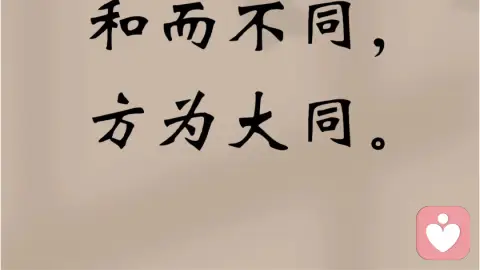 和而不同，
方为大同。